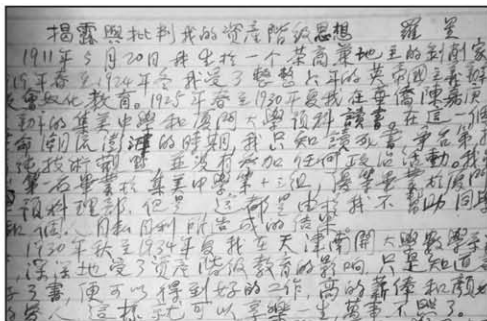 揭露與批判我的资产階级思想 羅星
1911年5月20日我生於一个茶商兼地主的剥削家
19年春至1924年冬我受了整整六年的英帝国主义辦
奴化教育。1925年春至1930年夏我在華僑陳嘉庚
辦的集美中學和厦門大學預科讀書。在這一個
潮流澎湃的时期,我只知讀死書,争名第
技術觀,並没有参加任何政治活動。我
第一名畢業於集美中學第十三组,優等畢業於厦門
預科理部,但是這都是由於我不幫助同學
個人自私自利所造成的结果
1930年秋至1934年夏我在天津南開大學數學系
深深地受了资产階级教育的影响,只是知道
了書,便可以得到好的工作,高的薪俸和
人這樣子也可以享樂一生,萬事不